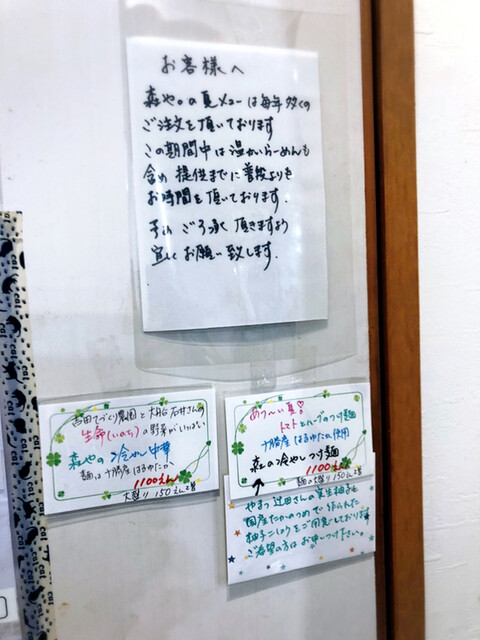 お客様へ
森や。の夏メニューは毎年多くの
ご注文を頂いております
この期間中は温かいらーめんも
含め 提供までに普段よりも
お時間を頂いております。
予め ご了承 頂きますよう
宜しくお願い致します。
吉田てづくり農園と大角 石井さんの
生命(いのち)の野菜がいっぱい
森やの冷やし中華
麺は十勝産はるゆたか
1100えん
大盛り150えん増
あつ〜い夏♡
トマトとハーブのつけ麺
十勝産 はるゆたか使用
森の冷やしつけ麺
1100えん
麺の大盛り150えん増
やまつ辻田さんの実生柚子と
国産たかのつめで作られた
柚子こしょうをご用意しております
ご希望の方はお申しつけ下さい。
cat
cat
cat
cat
cat